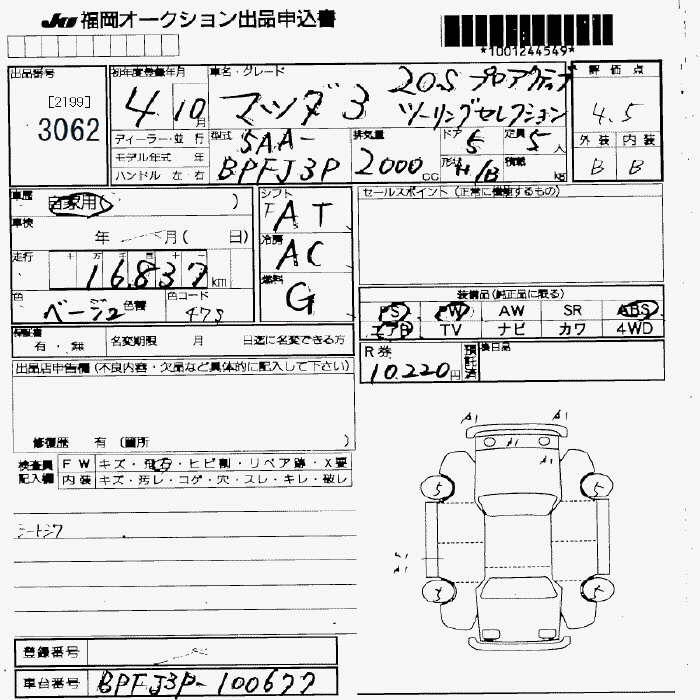 JU 福岡オークション出品申込書
*1001244549*
出品番号 初年度登録年月 車名・グレード 評価点
[2199]
3062
4年10月 マツダ3 20S プロアクティブ
ツーリングセレクション
4.5
ディーラー・並行 型式 排気量 ドア 定員 外装 内装
モデル年式 年 5AA- 5 5人
ハンドル 左・右 BPFJ3P 2000cc 形状 H/B 積載 kg B B
車歴 自家用( ) シフト セールスポイント (正常に機能するもの)
FAT
車検 年 月( 日) 冷房
AC
走行 十万千百十一
16,837km 燃料
G
色 ベージュ 色替 色コード 47S
装備品(純正品に限る)
PS PW AW SR ABS
エアB TV ナビ カワ 4WD
保証書
有・無 名変期限 月 日迄に名変できる方
R券 10,220円 預託済 後日品
出品店申告欄(不良内容・欠品など具体的に記入して下さい)
修復歴 有 〔箇所 〕
検査員 FW キズ・飛石・ヒビ割・リペア跡・X要
記入欄 内装 キズ・汚レ・コゲ・穴・スレ・キレ・破レ
シートシワ
A1 A1
A1
A1
5 5
A1
A1
5 5
登録番号
車台番号 BPFJ3P-100677